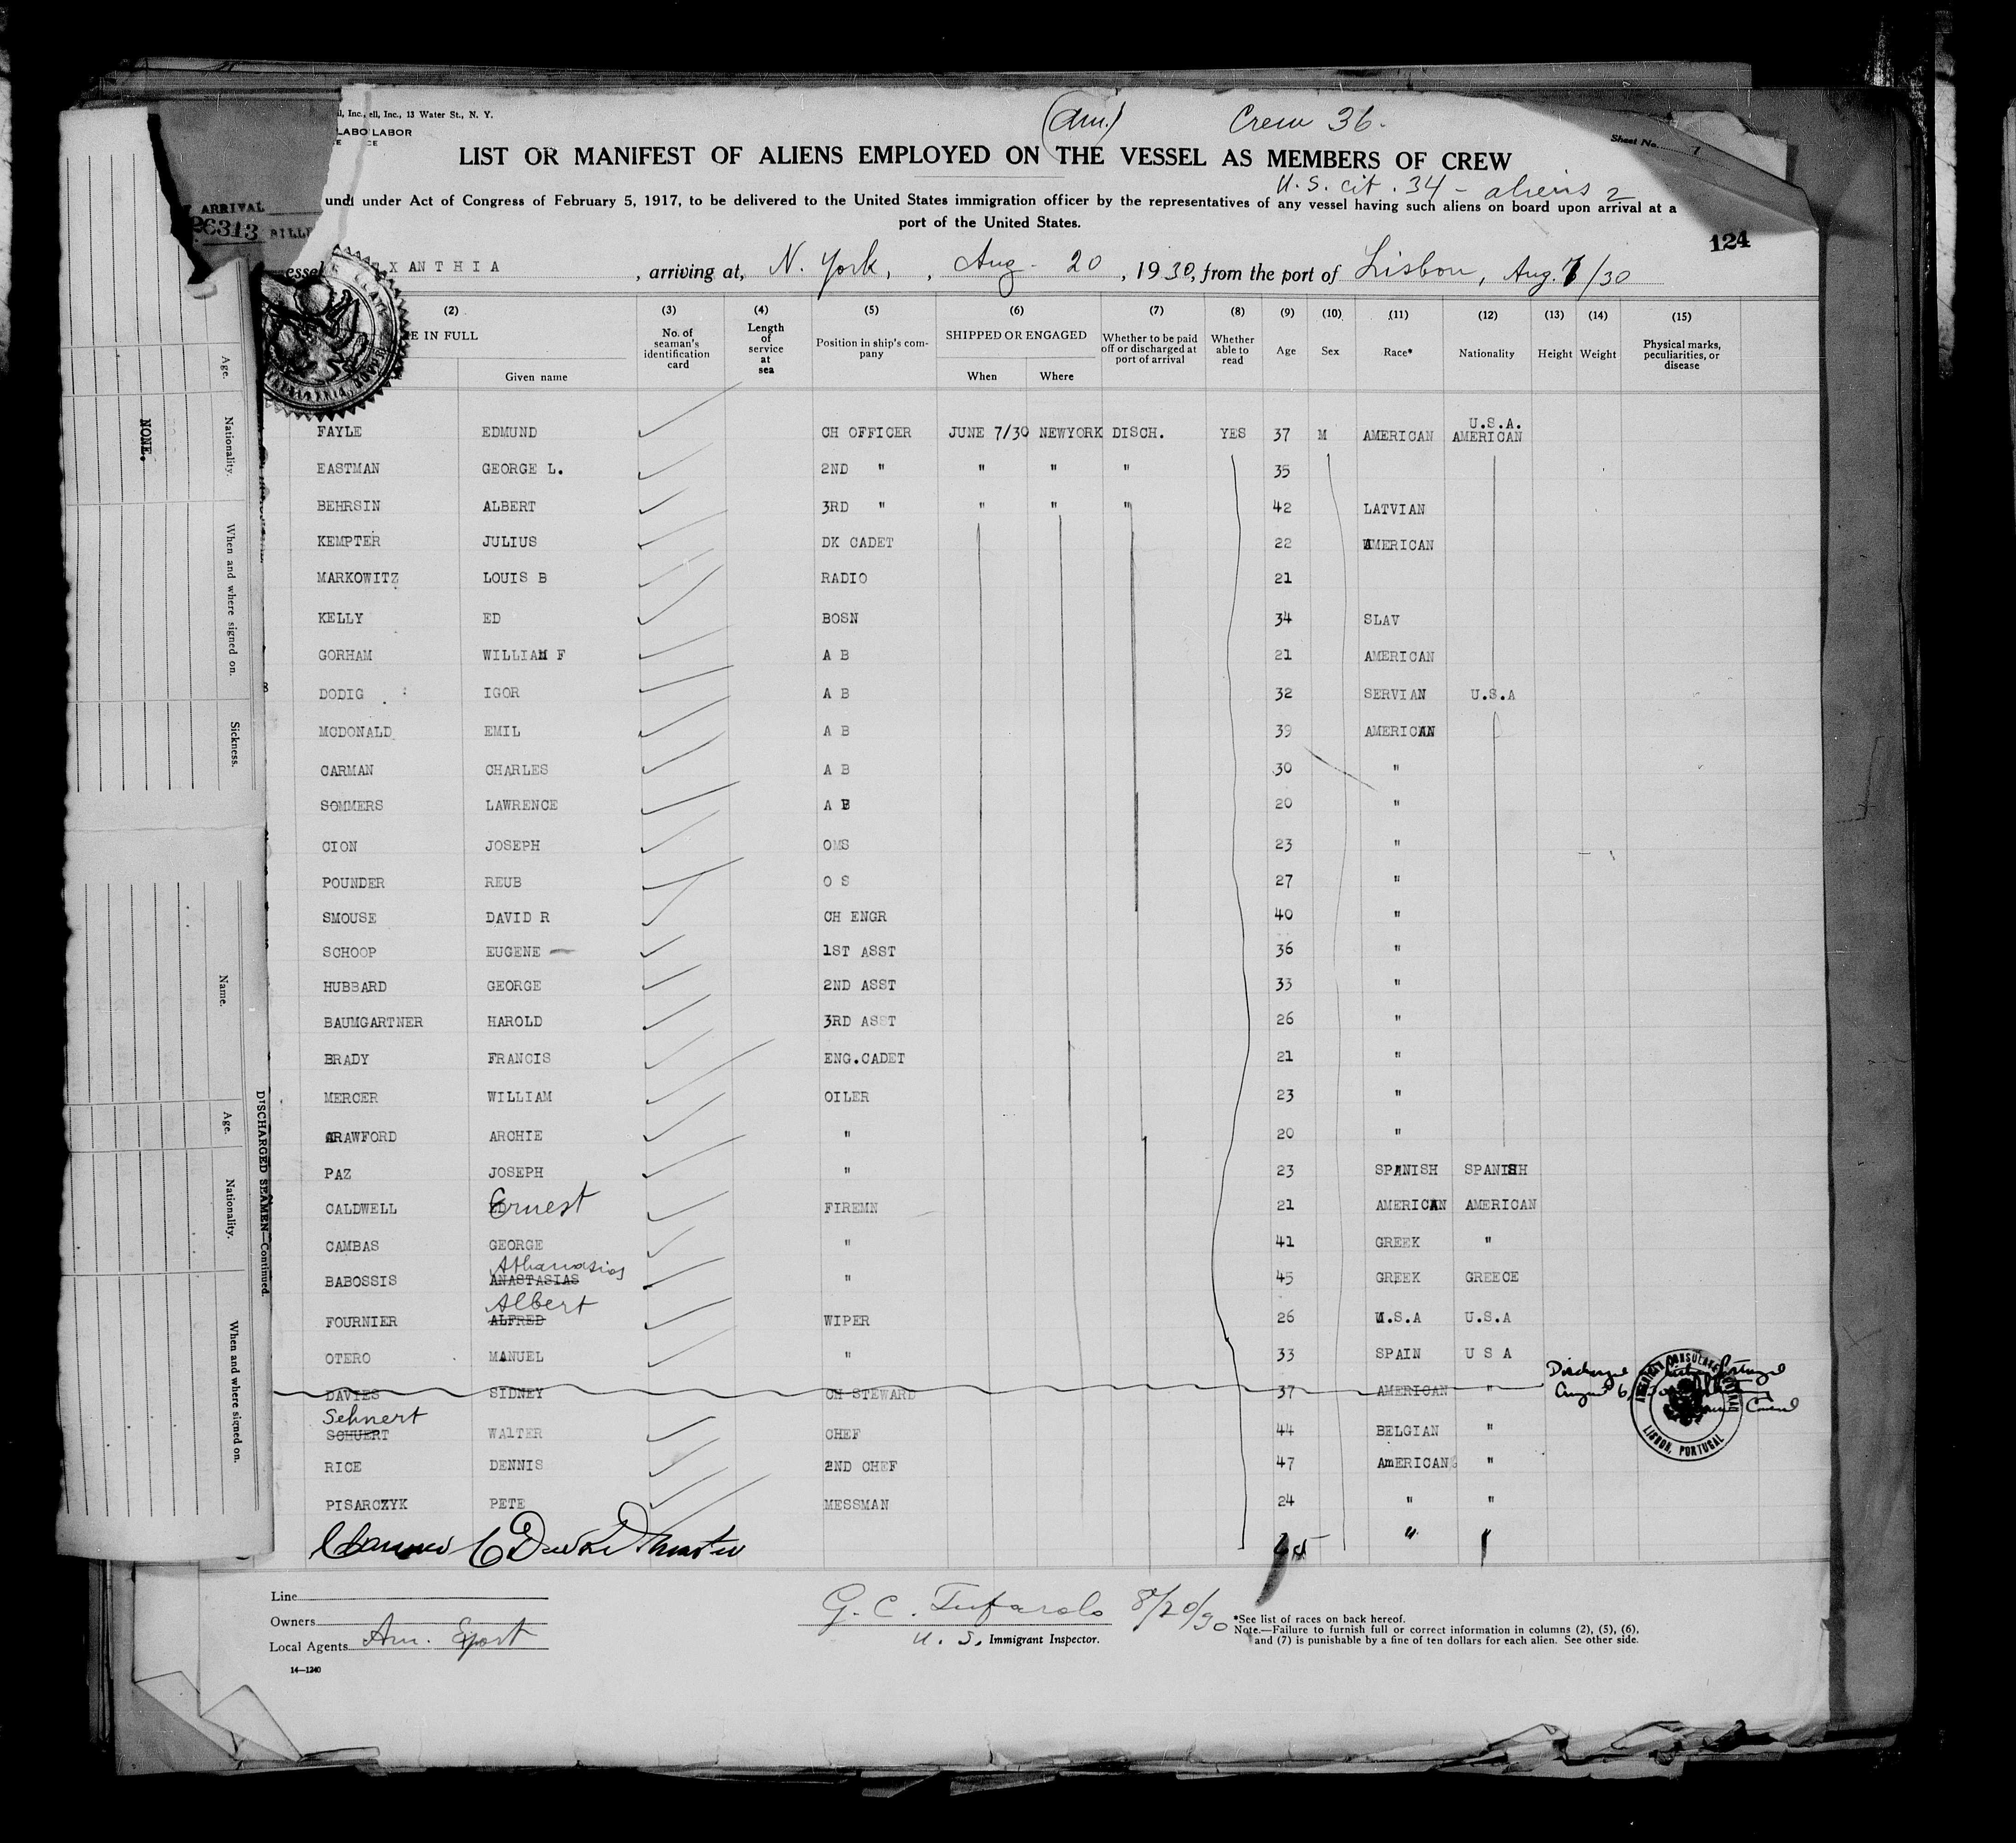 ell, Inc., 13 Water St., N. Y.
LABOR
(Am.) Crew 36.
Sheet No.
LIST OR MANIFEST OF ALIENS EMPLOYED ON THE VESSEL AS MEMBERS OF CREW
U.S. cit. 34 - aliens 2
under Act of Congress of February 5, 1917, to be delivered to the United States immigration officer by the representatives of any vessel having such aliens on board upon arrival at a
port of the United States.
ARRIVAL
26313
124
XANTHIA, arriving at, N. York, , Aug. 20, 1930, from the port of Lisbon, Aug. 7/30
(2) (3) (4) (5) (6) (7) (8) (9) (10) (11) (12) (13) (14) (15)
E IN FULL No. of seaman's identification card Length of service at sea Position in ship's company SHIPPED OR ENGAGED Whether to be paid off or discharged at port of arrival Whether able to read Age Sex Race* Nationality Height Weight Physical marks, peculiarities, or disease
Given name When Where
U.S.A.
FAYLE EDMUND CH OFFICER JUNE 7/30 NEWYORK DISCH. YES 37 M AMERICAN AMERICAN
EASTMAN GEORGE L. 2ND " " " " 35
BEHRSIN ALBERT 3RD " " " " 42 LATVIAN
KEMPTER JULIUS DK CADET 22 AMERICAN
MARKOWITZ LOUIS B RADIO 21
KELLY ED BOSN 34 SLAV
GORHAM WILLIAM F A B 21 AMERICAN
DODIG IGOR A B 32 SERVIAN U.S.A
MCDONALD EMIL A B 39 AMERICAN
CARMAN CHARLES A B 30 "
SOMMERS LAWRENCE A B 20 "
CION JOSEPH OMS 23 "
POUNDER REUB O S 27 "
SMOUSE DAVID R CH ENGR 40 "
SCHOOP EUGENE 1ST ASST 36 "
HUBBARD GEORGE 2ND ASST 33 "
BAUMGARTNER HAROLD 3RD ASST 26 "
BRADY FRANCIS ENG.CADET 21 "
MERCER WILLIAM OILER 23 "
CRAWFORD ARCHIE " 20 "
PAZ JOSEPH " 23 SPANISH SPANISH
CALDWELL Ernest FIREMN 21 AMERICAN AMERICAN
CAMBAS GEORGE " 41 GREEK "
Athanasios
BABOSSIS ANASTASIAS " 45 GREEK GREECE
Albert
FOURNIER ALFRED WIPER 26 U.S.A U.S.A
OTERO MANUEL " 33 SPAIN U S A
DAVIES SIDNEY CH STEWARD 37 AMERICAN "
Discharged
August 6,
AMERICAN CONSULATE GENERAL
LISBON, PORTUGAL
Sehnert
SCHUERT WALTER CHEF 44 BELGIAN "
RICE DENNIS 2ND CHEF 47 AmERICAN "
PISARCZYK PETE MESSMAN 24 " "
"
Line
Owners
Local Agents Am. Export
14—1240
G. C. Tufarolo 8/20/30
U. S. Immigrant Inspector.
*See list of races on back hereof.
Note.—Failure to furnish full or correct information in columns (2), (5), (6),
and (7) is punishable by a fine of ten dollars for each alien. See other side.
NONE.
Age.
Nationality.
When and where signed on.
Sickness.
DISCHARGED SEAMEN—Continued.
Name.
Age.
Nationality.
When and where signed on.